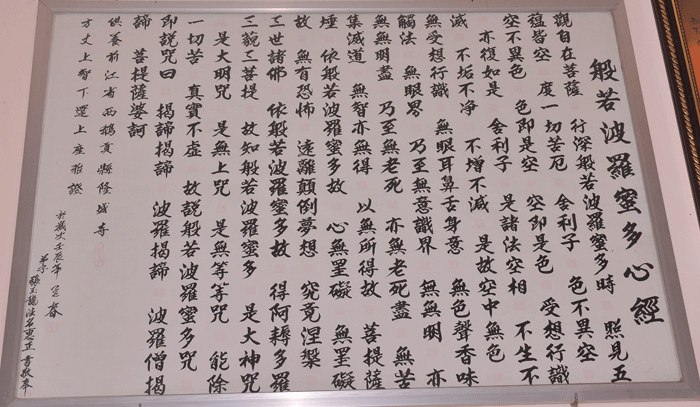 般若波羅蜜多心經
觀自在菩薩 行深般若波羅蜜多時 照見五
蘊皆空 度一切苦厄 舍利子 色不異空
空不異色 色即是空 空即是色 受想行識
亦復如是 舍利子 是諸法空相 不生不
滅 不垢不淨 不增不減 是故空中無色
無受想行識 無眼耳鼻舌身意 無色聲香味
觸法 無眼界 乃至無意識界 無無明 亦
無無明盡 乃至無老死 亦無老死盡 無苦
集滅道 無智亦無得 以無所得故 菩提薩
埵 依般若波羅蜜多故 心無罣礙 無罣礙
故 無有恐怖 遠離顛倒夢想 究竟涅槃
三世諸佛 依般若波羅蜜多故 得阿耨多羅
三藐三菩提 故知般若波羅蜜多 是大神咒
是大明咒 是無上咒 是無等等咒 能除
一切苦 真實不虛 故說般若波羅蜜多咒
即說咒曰 揭諦揭諦 波羅揭諦 波羅僧揭
諦 菩提薩婆訶
供養前江省西 縣隆城寺
方丈上智下還上座雅證
於歲次壬辰年 春
弟子 張玉龍法名惠正書敬奉